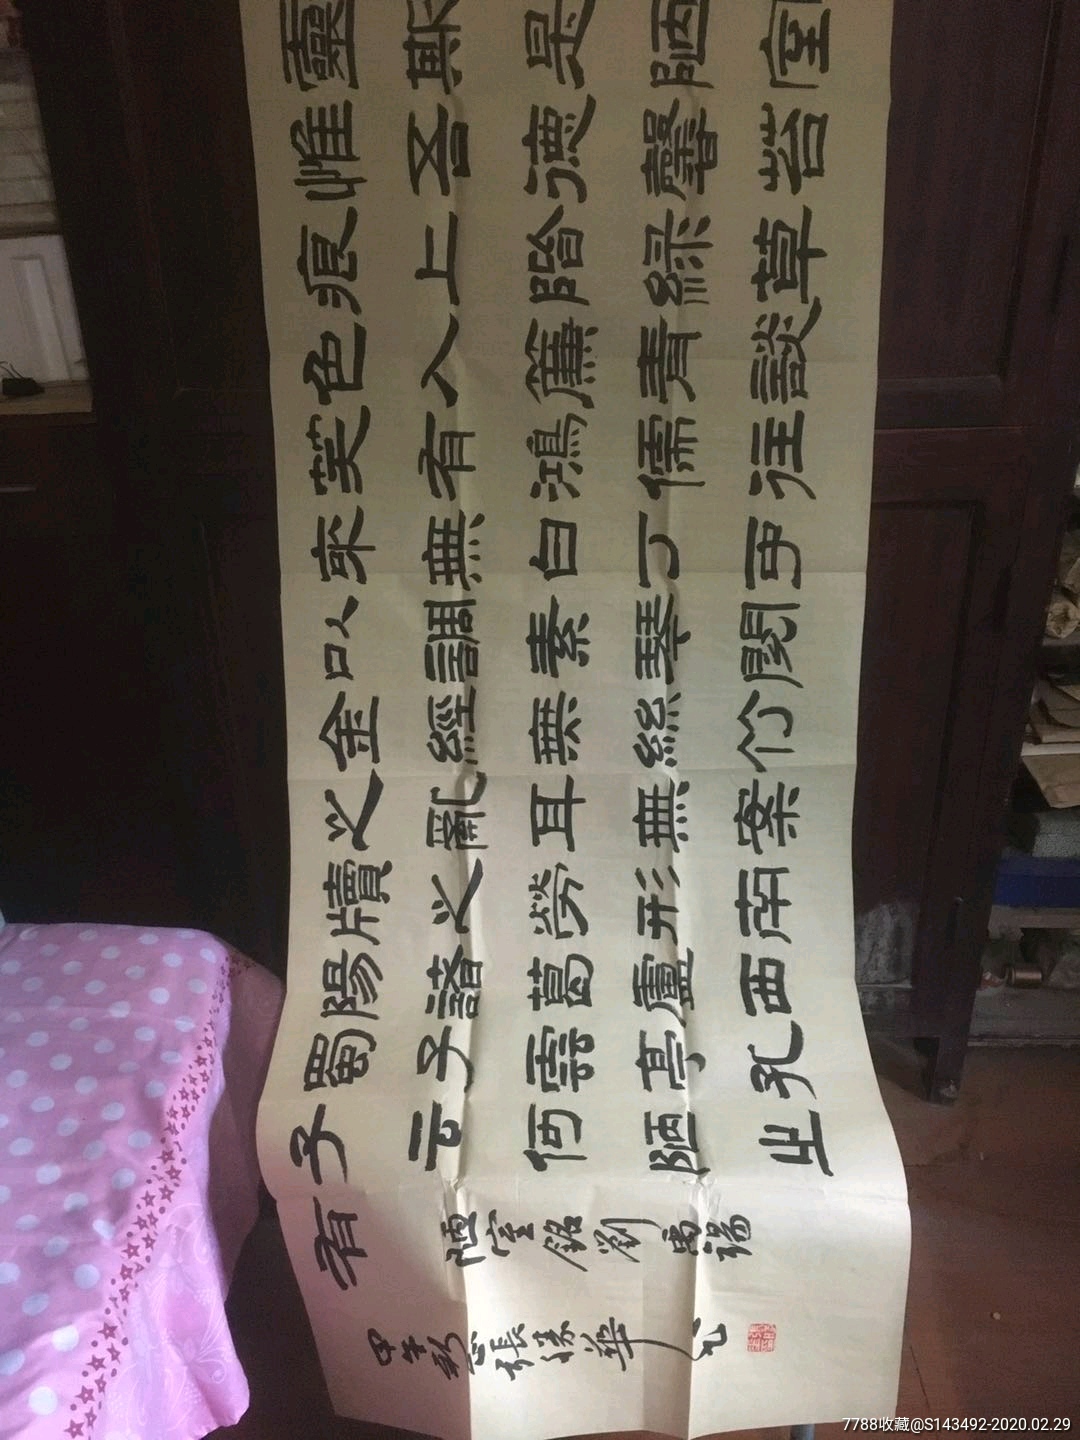 靈斯是陋室
惟吾德馨苔
痕上階綠草
色入簾青談
笑有鴻儒往
来無白丁可
以調素琴閱
金經無絲竹
之亂耳無案
牘之勞形南
陽諸葛廬西
蜀子雲亭孔
子云何陋之
有
陋室銘劉禹錫
甲午 張 華
7788收藏@S143492-2020.02.29